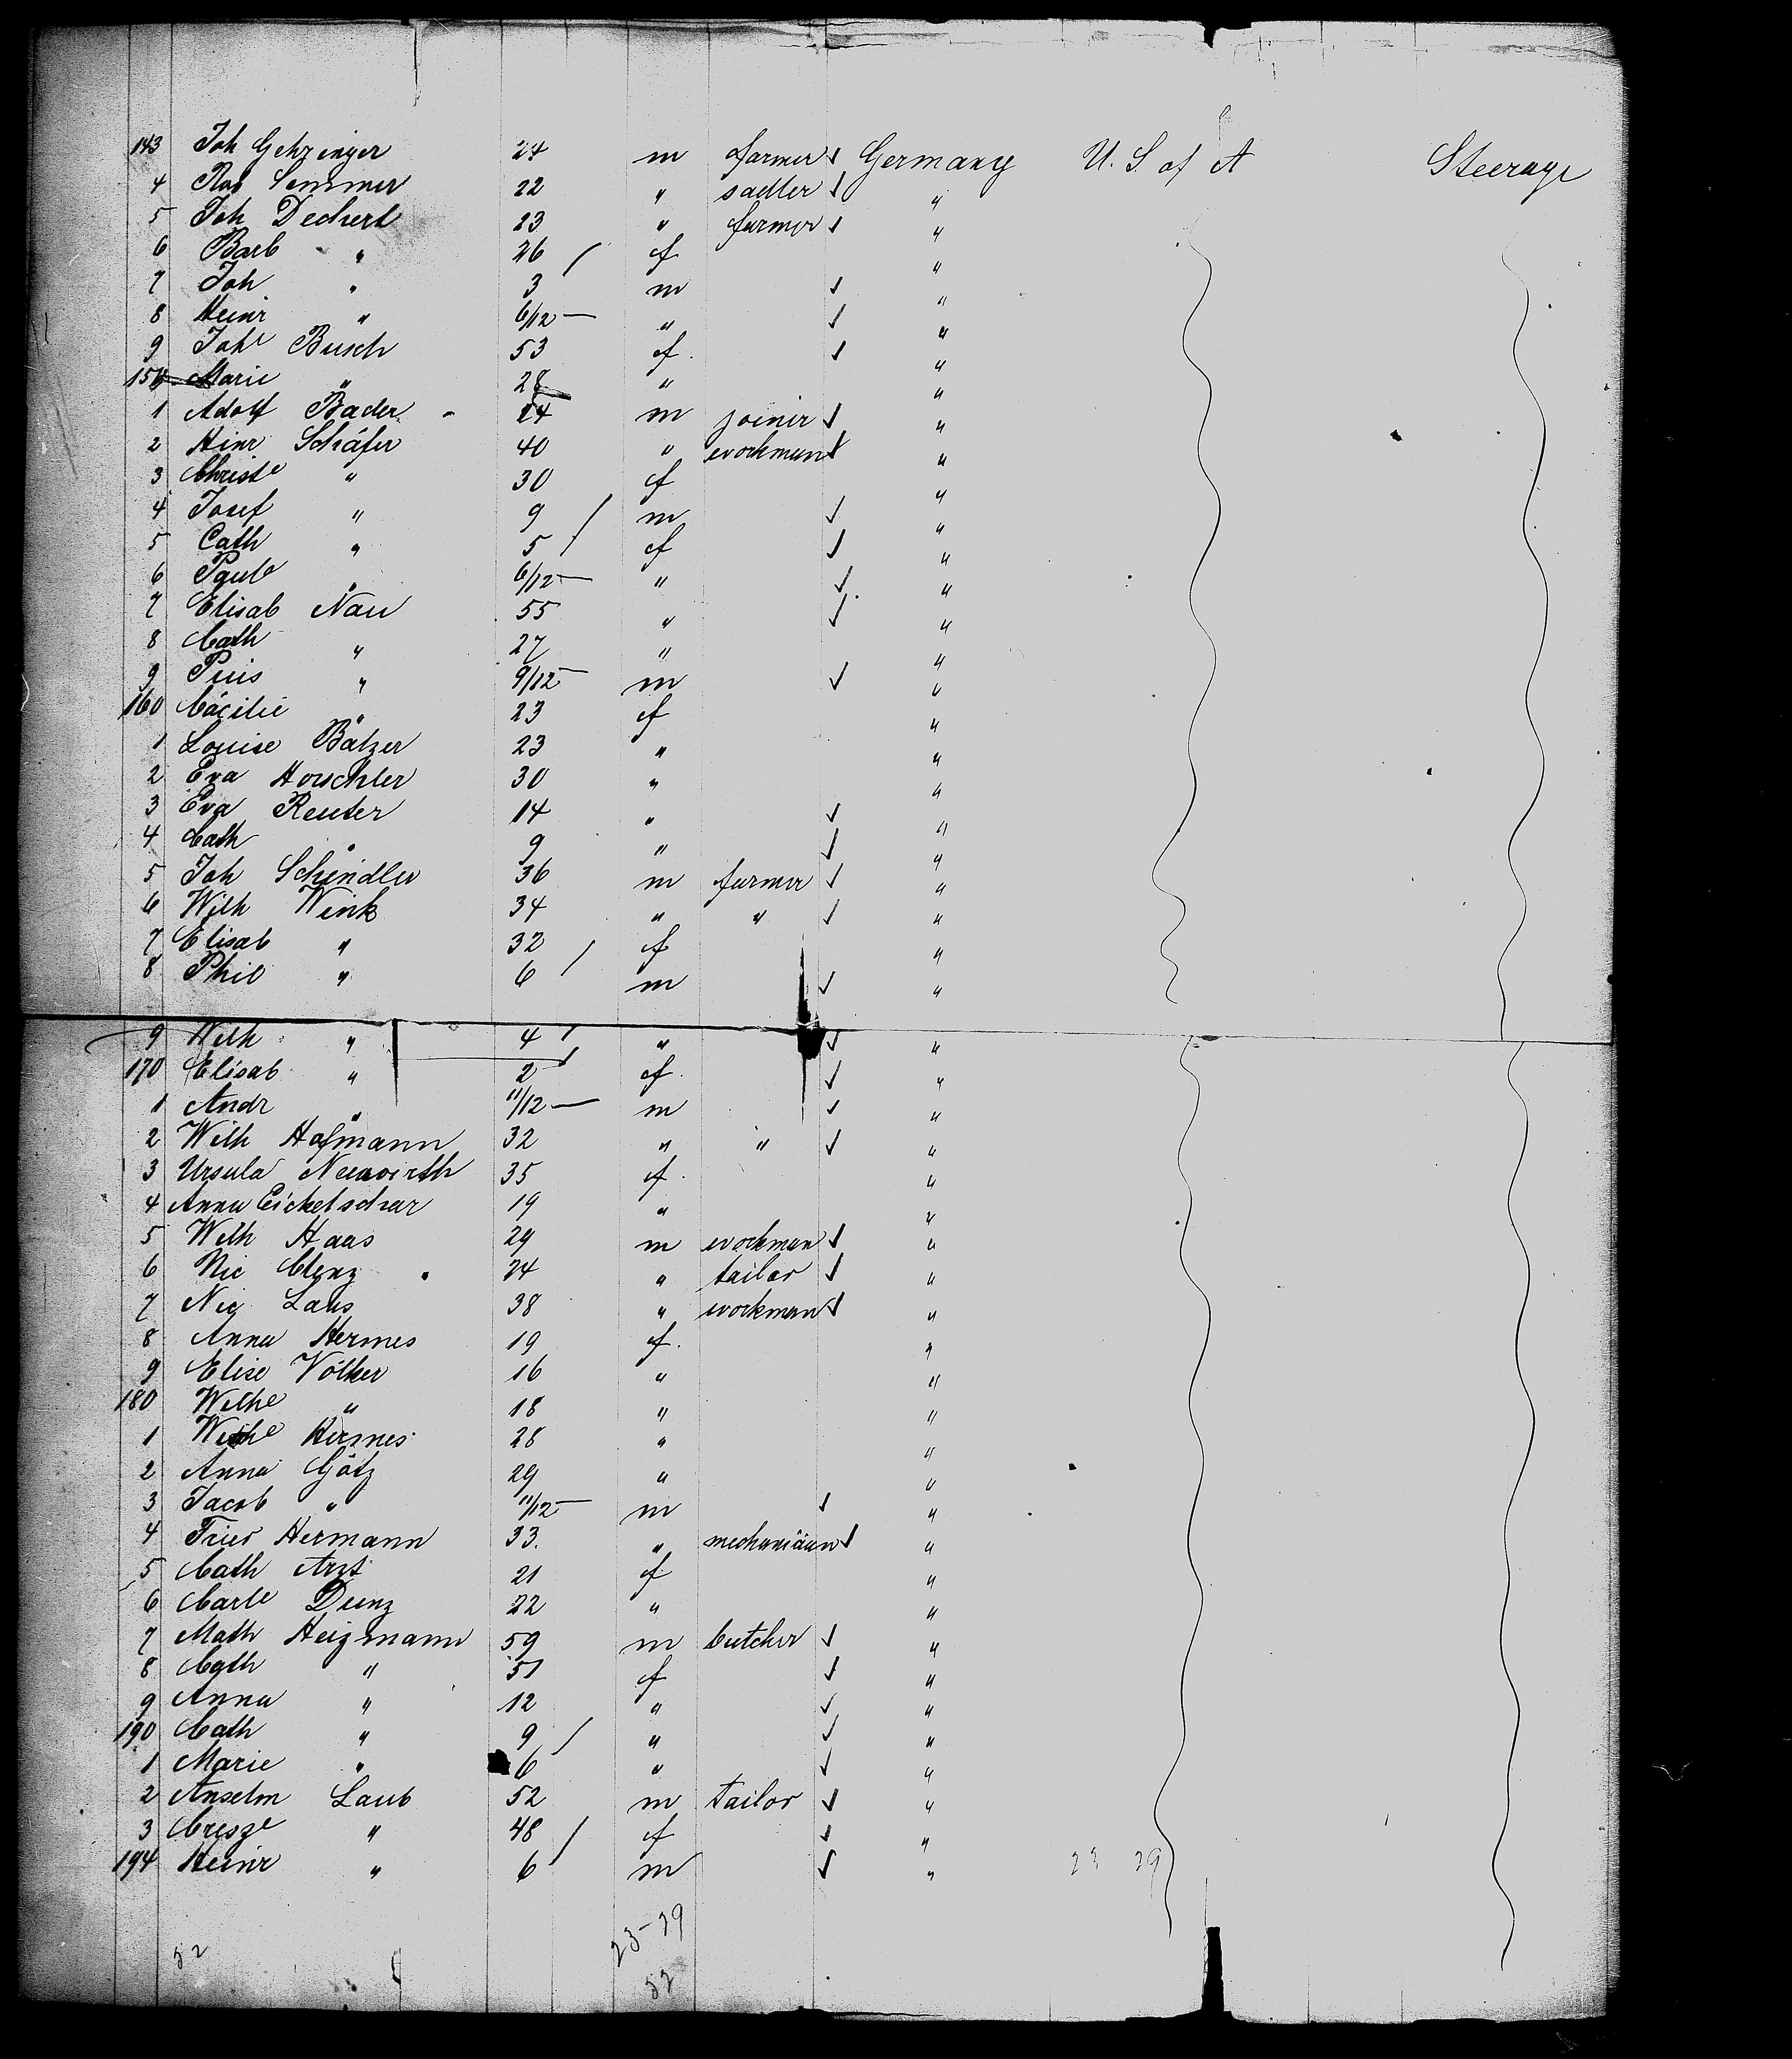 143 Joh Gehringer 24 m farmer ✓ Germany U. S. of A Steerage
4 Rob Semmer 22 " sadler ✓ "
5 Joh Dechert 23 " farmer ✓ "
6 Barb " 26 / f "
7 Joh " 3 m ✓ "
8 Heinr " 6/12 — " ✓ "
9 Johe Busch 53 f. ✓ "
150 Marie " 28 " "
1 Adolf Bader 24 m joiner ✓ "
2 Hinr Schäfer 40 " workman ✓ "
3 Christe " 30 f "
4 Josef " 9 / m ✓ "
5 Cath " 5 / f ✓ "
6 Paule " 6/12 — " ✓ "
7 Elisab Nau 55 " ✓ "
8 Cath " 27 " "
9 Pius " 9/12 — m ✓ "
160 Cäcilie " 23 f "
1 Louise Balzer 23 " "
2 Eva Horschler 30 " "
3 Eva Reuter 14 " ✓ "
4 Cath " 9 " ✓ "
5 Joh Schindler 36 m farmer ✓ "
6 Wilh Wink 34 " " ✓ "
7 Elisab " 32 / f "
8 Phil " 6 / m ✓ "
9 Wilh " 4 / " ✓ "
170 Elisab " 2 / f. ✓ "
1 Andr " 11/12 — m ✓ "
2 Wilh Hofmann 32 " " ✓ "
3 Ursula Neuwirth 35 f. "
4 Anna Eichelschar 19 " "
5 Wilh Haas 29 m workman ✓ "
6 Nic Clenz 24 " tailor ✓ "
7 Nic Laus 38 " workman ✓ "
8 Anna Hermes 19 f. "
9 Elise Völker 16 " "
180 Wilhe " 18 " "
1 Wilhe Hermes 28 " "
2 Anna Götz 29 " "
3 Jacob " 11/12 — m ✓ "
4 Hermann 33. " mechaniäan ✓ "
5 Cath Arzt 21 f "
6 Carle Dunz 22 " "
7 Math Heizmann 59 m butcher ✓ "
8 Cath " 51 f ✓ "
9 Anna " 12 " ✓ "
190 Cath " 9 / " ✓ "
1 Marie " 6 " ✓ "
2 Anselm Laub 52 m tailor ✓ "
3 Cresze " 48 / f ✓ "
194 Heinr " 6 / m ✓ " 23 29
23-29
52 52